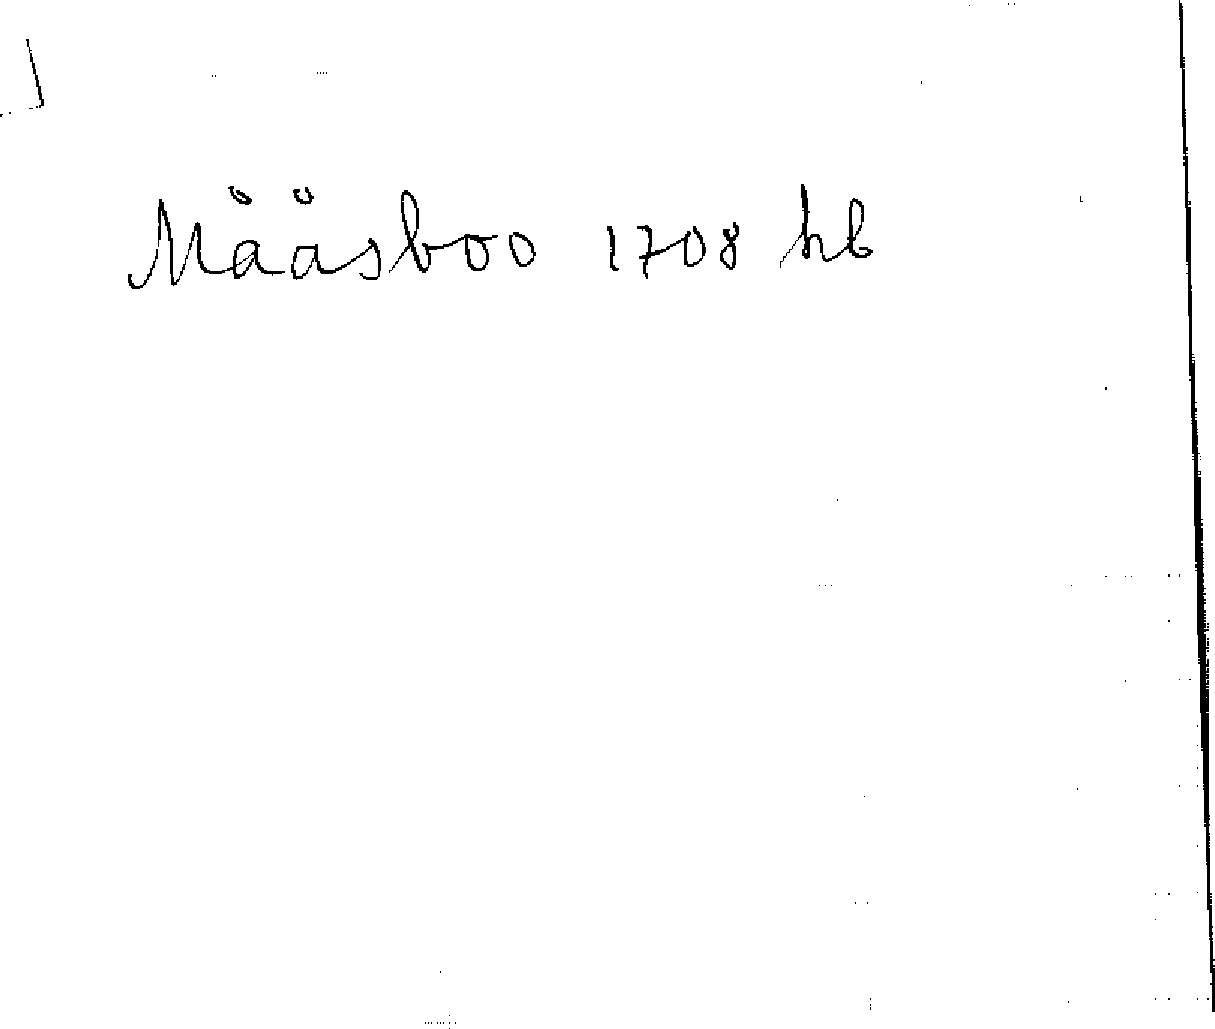 Määsboo 1708 hb